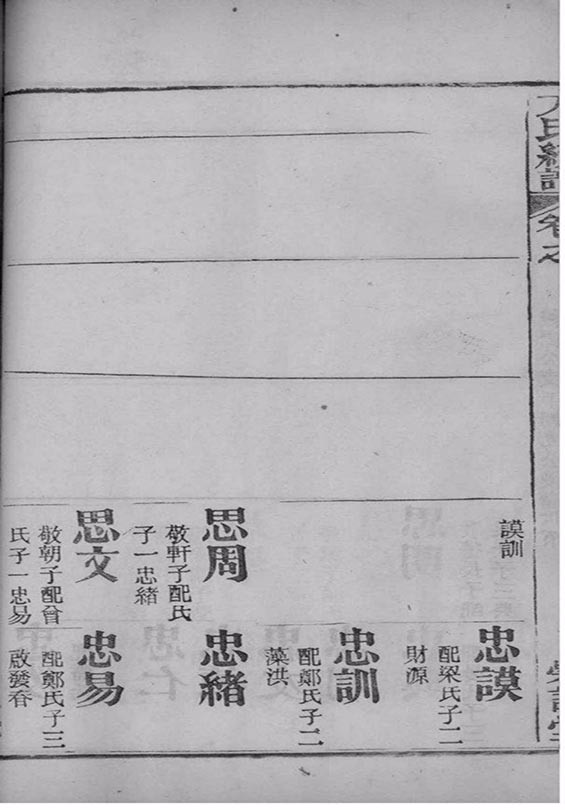 氏續譜
卷之
謨訓
思周
敬軒子配氏
子一忠緒
思文
敬朝子配曾
氏子一忠易
忠謨
配梁氏子二
財源
忠訓
配鄭氏子二
藻洪
忠緒
忠易
配鄭氏子三
啟發春